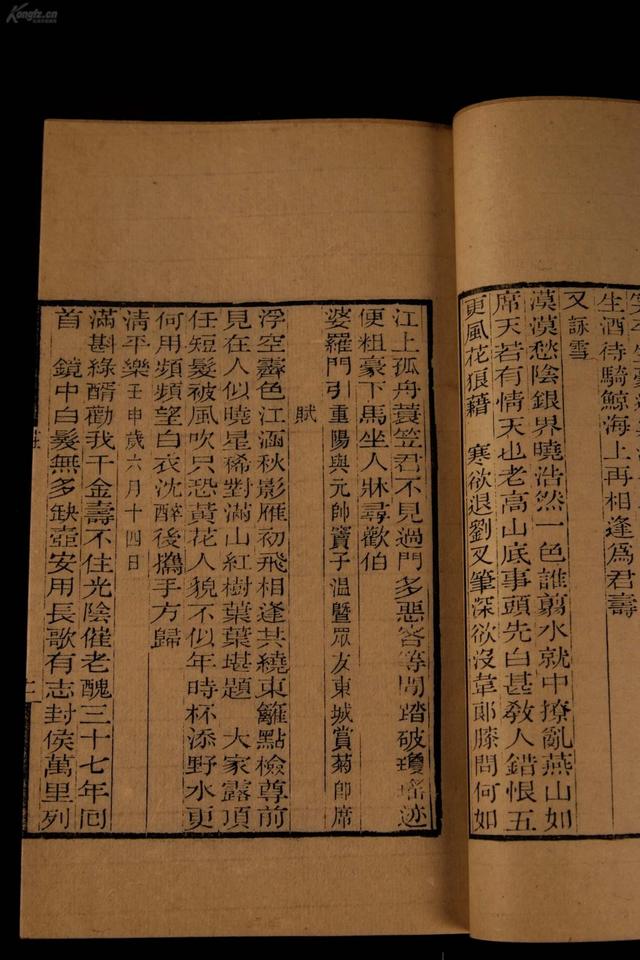 Kongfz.cn
生酒待騎鯨海上再相逢爲君壽
又詠雪
漠漠愁陰銀界曉浩然一色誰翦水就中撩亂燕山如
席天若有情天也老高山底事頭先白甚教人錯恨五
更風花狼藉 寒欲退劉叉筆深欲沒韋郞膝問何如
江上孤舟蓑笠君不見過門多惡客等閒踏破瓊瑤迹
便粗豪下馬坐人牀尋歡伯
婆羅門引重陽與元帥竇子温曁眾友東城賞菊卽席
賦
浮空霽色江涵秋影雁初飛相逢共繞東籬點檢尊前
見在人似曉星稀對滿山紅樹葉葉堪題 大家露頂
任短髮被風吹只恐黃花人貌不似年時杯添野水更
何用頻頻望白衣沈醉後攜手方歸
淸平樂壬申歲六月十四日
滿斟綠醑勸我千金壽不住光陰催老醜三十七年囘
首 鏡中白髮無多缺壺安用長歌有志封侯萬里列